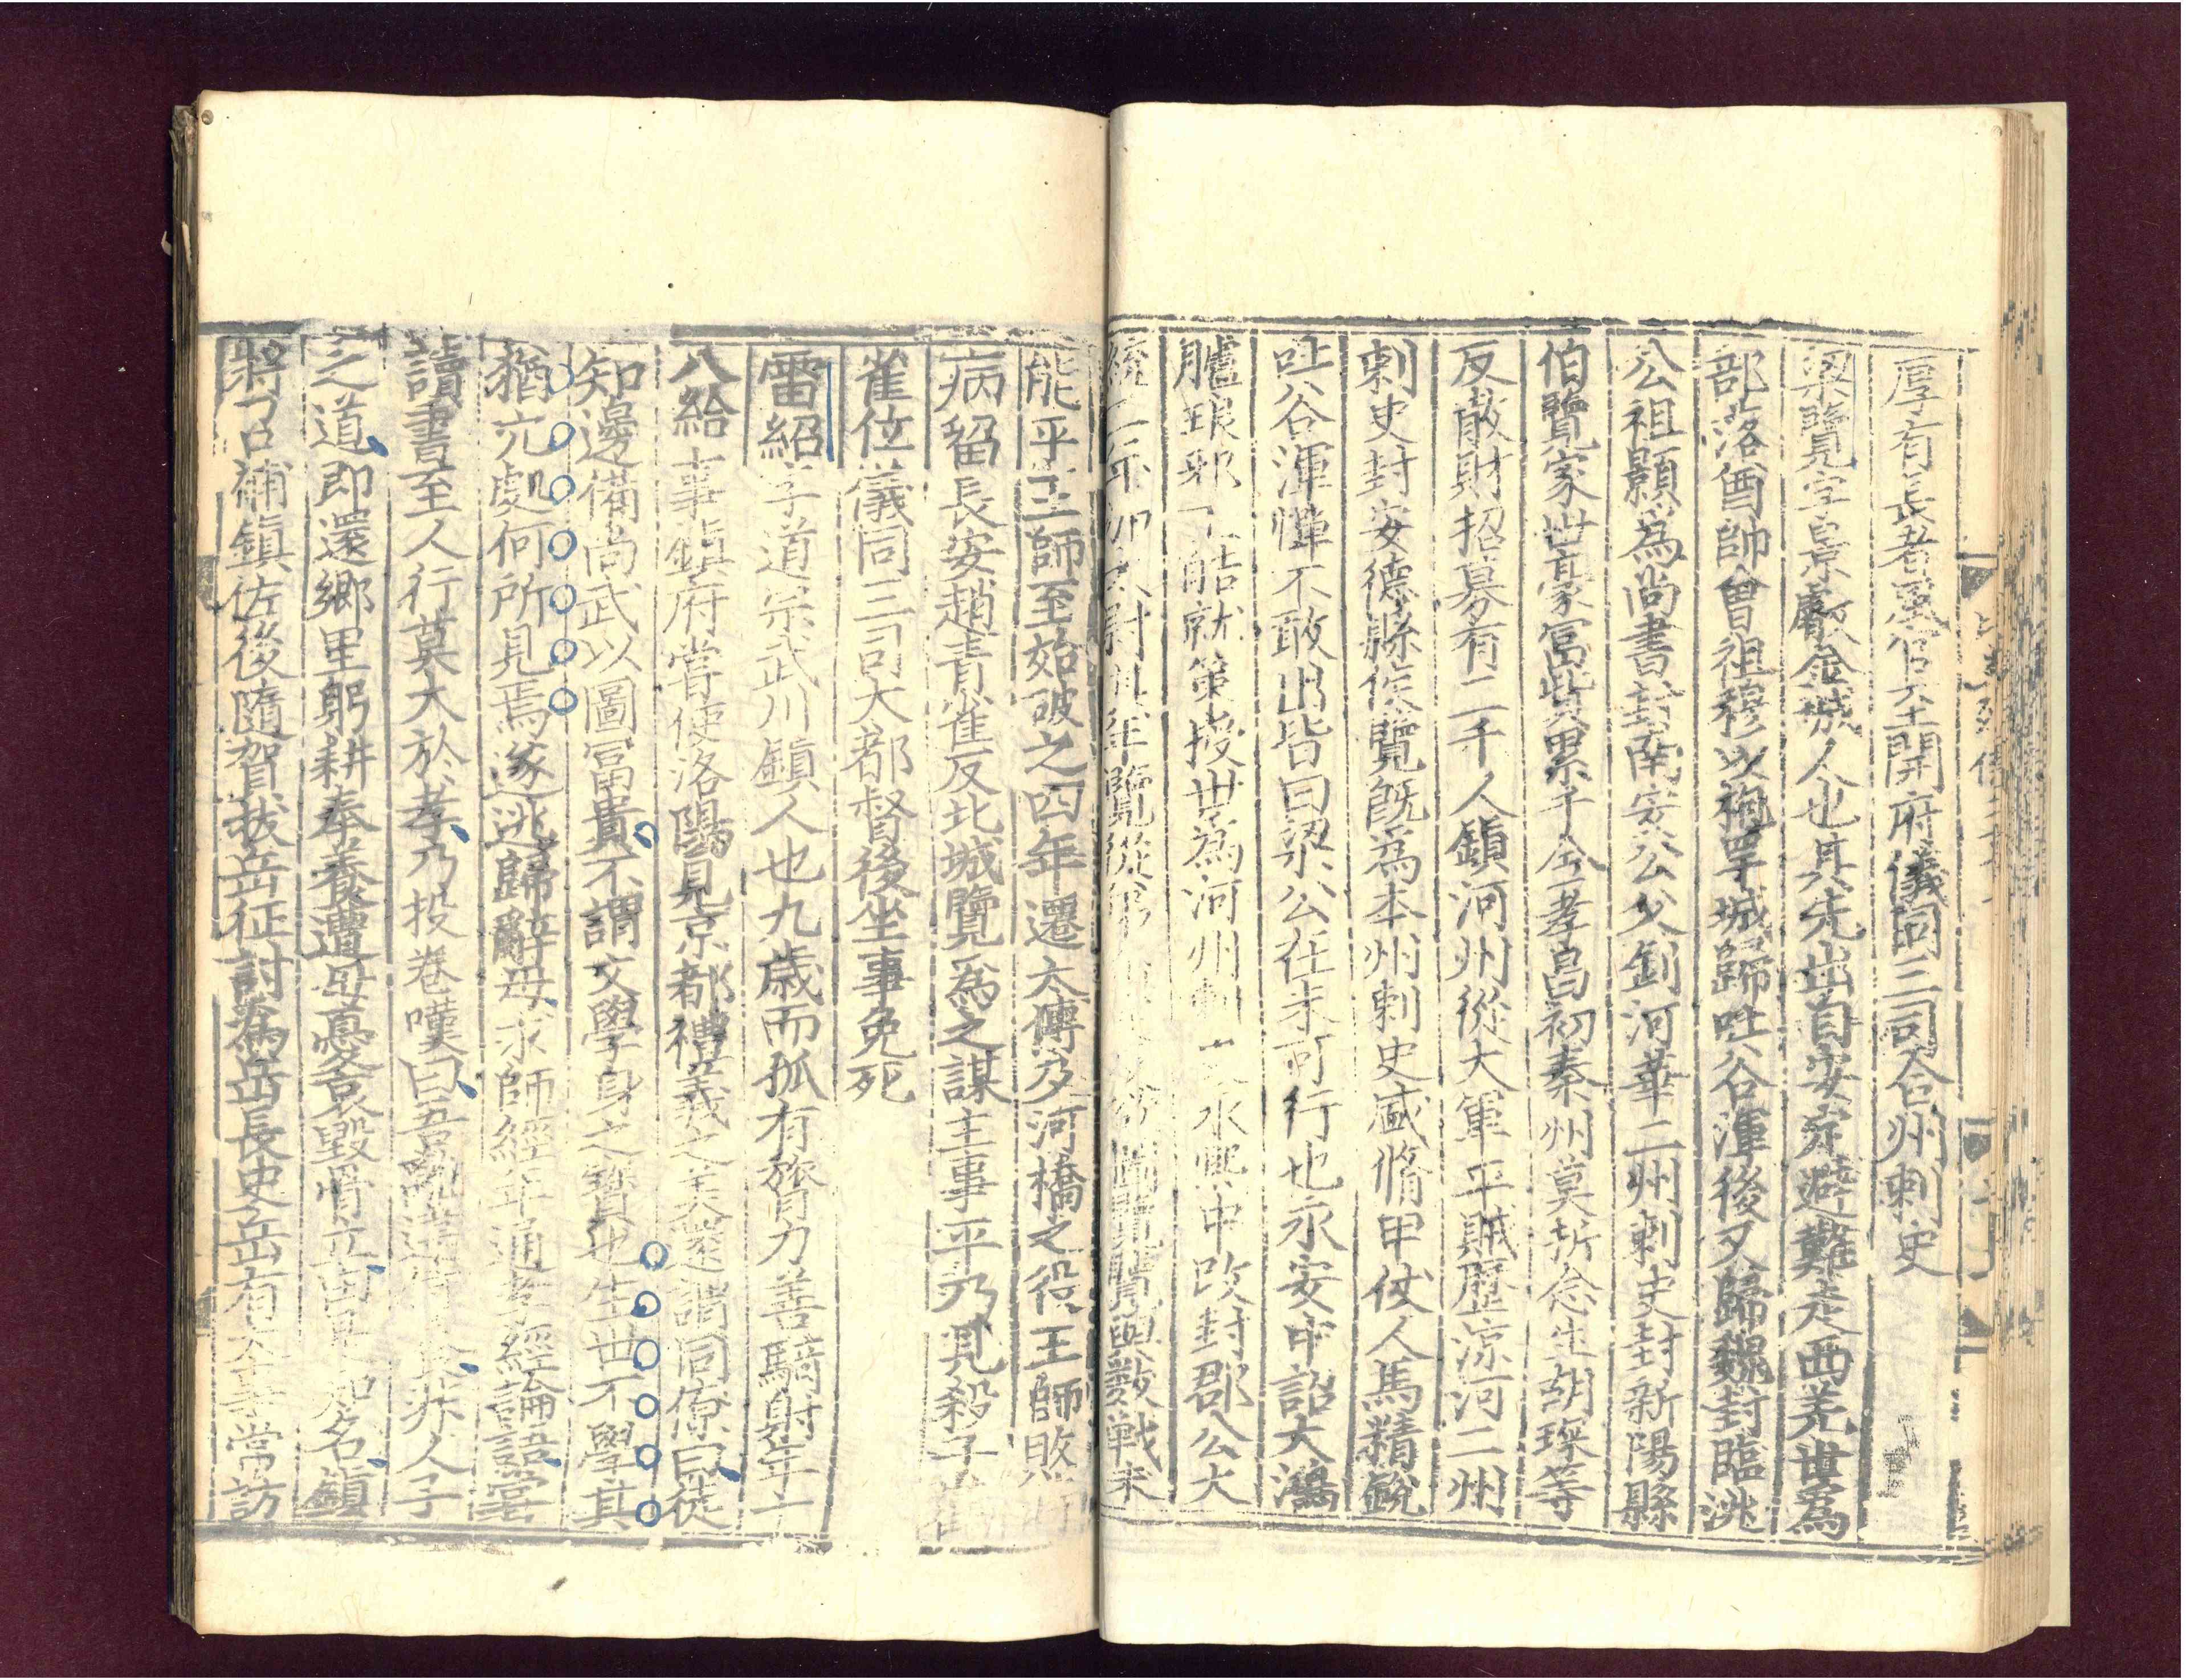 厚有長者風官至開府儀同三司合州刺史
梁覽字景叡金城人也其先出自安定避難走西羌世爲
部落酋帥曾祖穆以枹罕城歸吐谷渾後又歸魏封臨洮
公祖顥爲尚書封南安公父釗河華二州刺史封新陽縣
伯覽家世豪冨貲累千金孝昌初秦州莫折念生胡琛等
反散財招募有二千人鎮河州從大軍平賊歷涼河二州
刺史封安德縣侯覽旣爲本州刺史盛脩甲仗人馬精銳
吐谷渾憚不敢出皆曰梁公在未可行也永安中詔大鴻
臚琅邪 酷就策授世爲河州刺 永熙中改封郡公大
統二年 尉其年覽從弟 覽與數戰未
能平王師至始破之四年遷太傅及河橋之役王師敗
病留長安趙青雀反北城覽爲之謀主事平乃見殺子
雀位儀同三司大都督後坐事免死
雷紹字道宗武川鎮人也九歲而孤有膂力善騎射年十
八給事鎮府嘗使洛陽見京都禮義之美還謂同僚曰徒
知邊備尚武以圖冨貴不謂文學身之寶也生世不學其
猶穴處何所見焉遂逃歸辭母求師經年通孝經論語嘗
讀書至人行莫大於孝乃投卷嘆曰吾 違 非人子
之道即還鄉里躬耕奉養遭母憂哀毀骨立由是知名鎮
將召補鎮佐後隨賀拔岳征討爲岳長史岳有 常訪